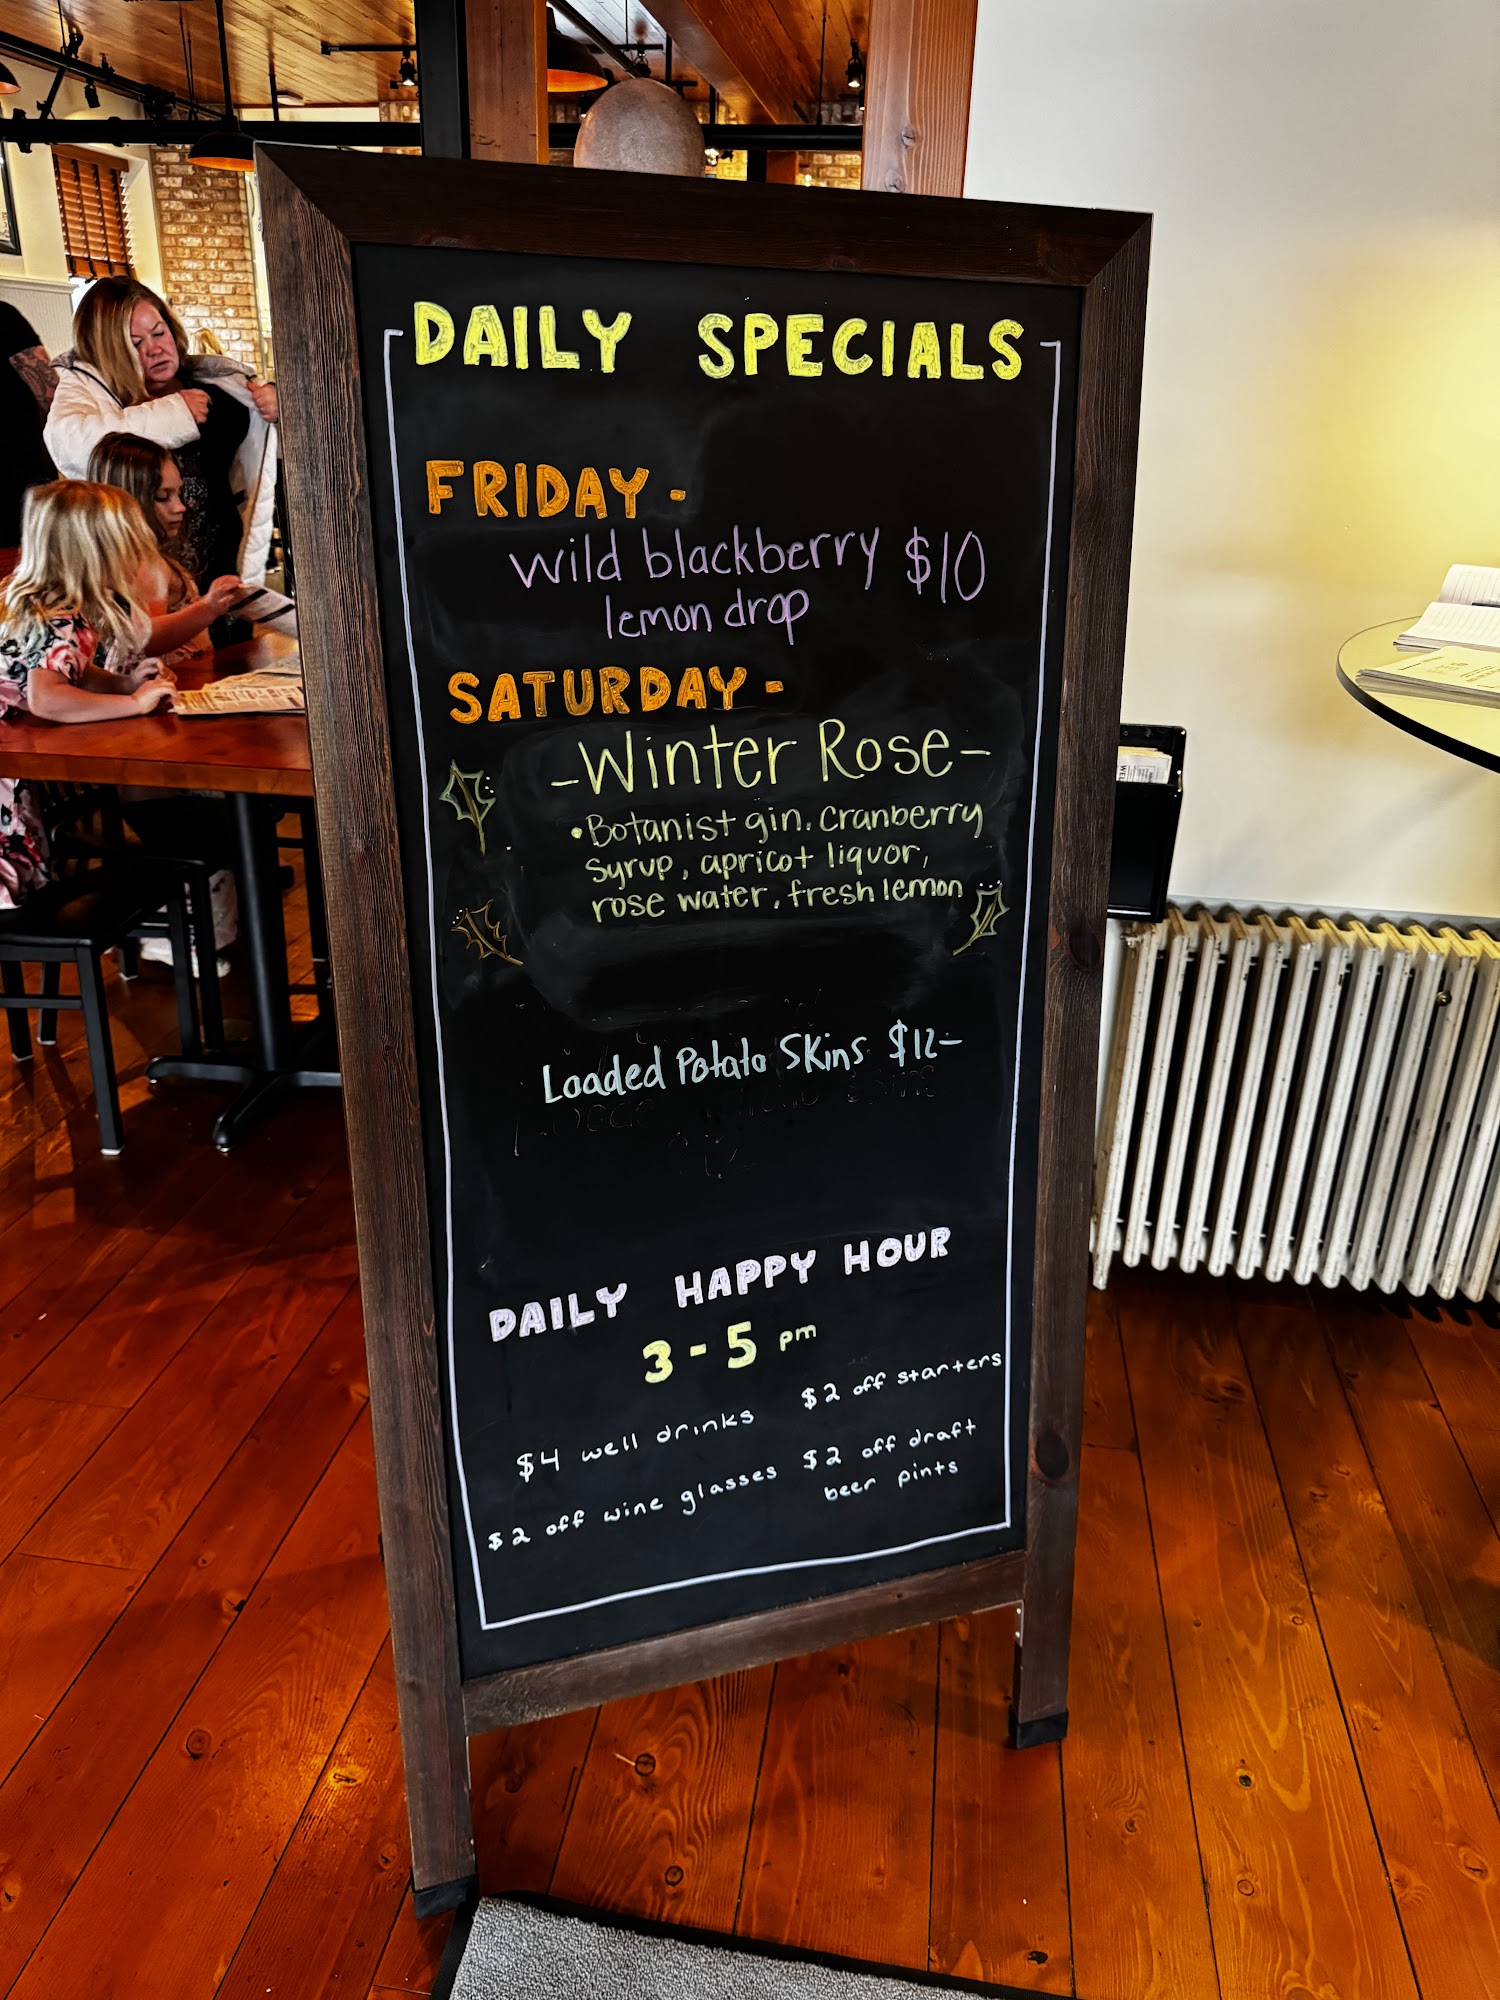 DAILY SPECIALS
FRIDAY -
wild blackberry $10
lemon drop
SATURDAY -
- Winter Rose -
• Botanist gin, cranberry
syrup, apricot liquor,
rose water, fresh lemon
Loaded Potato Skins $12-
DAILY HAPPY HOUR
3 - 5 pm
$4 well drinks
$2 off starters
$2 off wine glasses
$2 off draft
beer pints